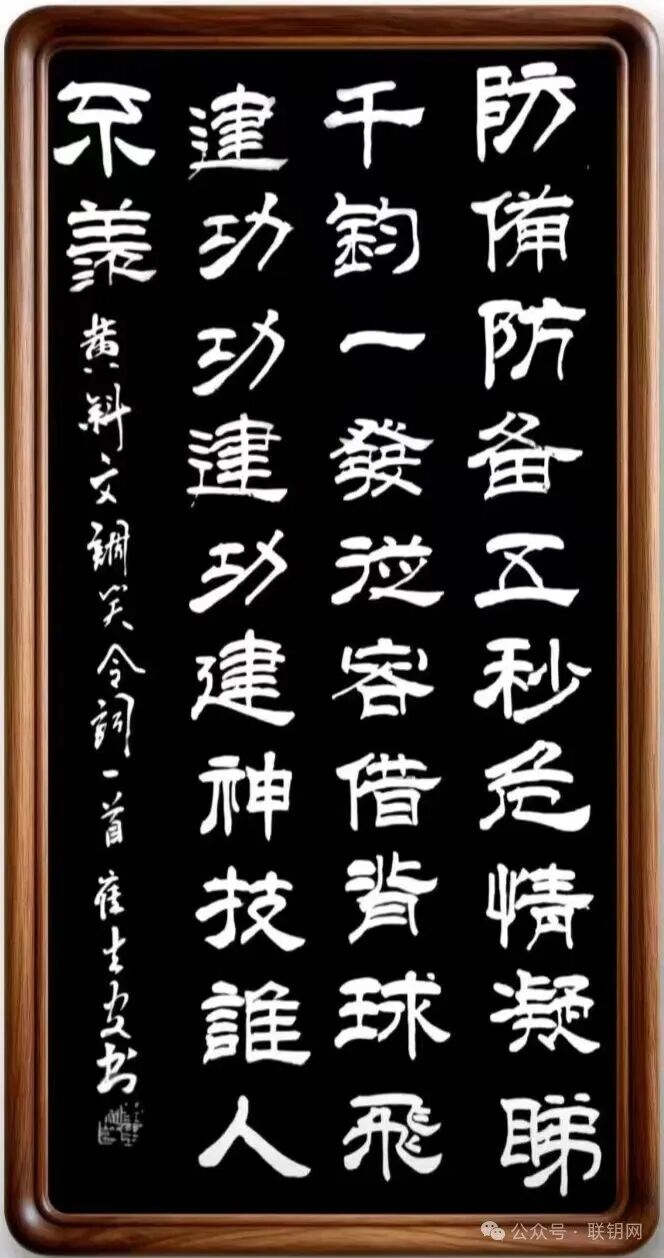 防備防备五秒危情凝睇
千鈞一發從容借背球飛
建功功建功建神技誰人
不羨
黄文調笑令詞一首 崔安书
公众号 · 联钥网